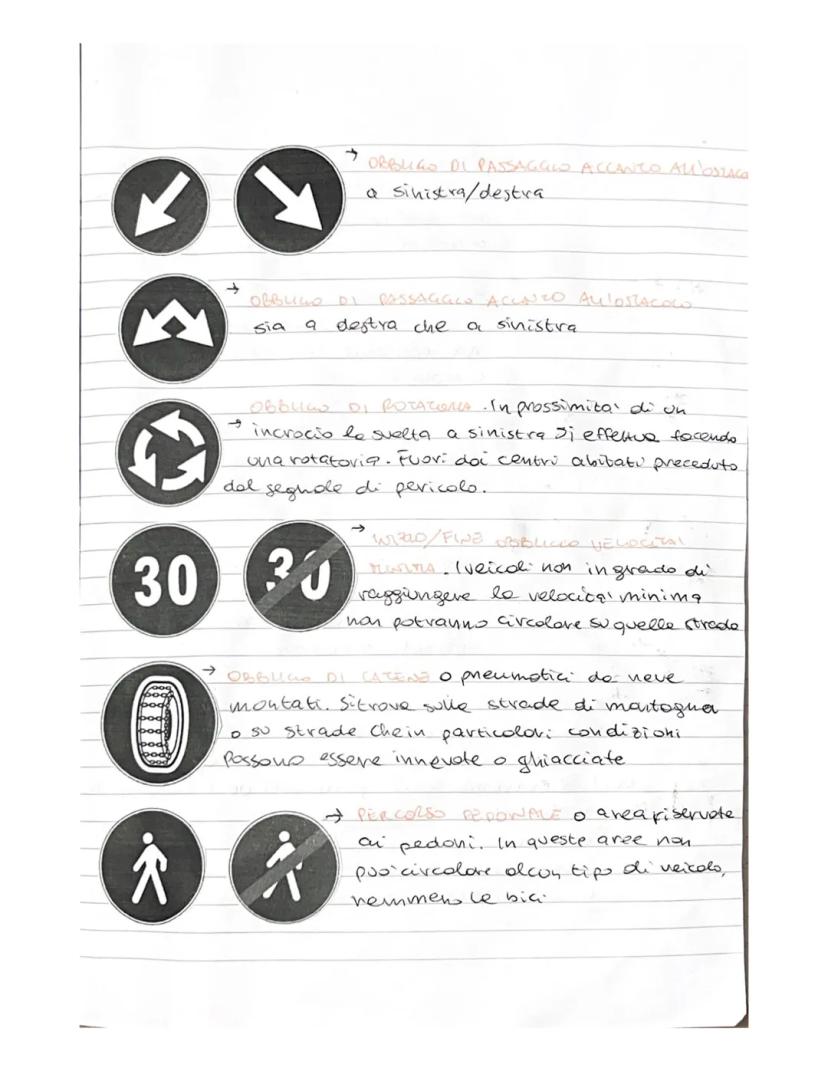 → OBBLIGO DI PASSAGGIO ACCANTO ALL'OSTACO
a sinistra/destra
→ OBBLIGO DI PASSAGGIO ACCANTO ALL'OSTACOLO
sia a destra che a sinistra
OBBLIGO DI ROTATORIA. In prossimita' di un
→ incrocio la svolta a sinistra si effettua facendo
una rotatoria. Fuori dai centri abitati preceduto
dal segnale di pericolo.
30 30 → INIZIO/FINE OBBLIGO VELOCITA'
MINIMA. I veicoli non in grado di
raggiungere la velocita' minima
non potranno circolare su quelle strade
→ OBBLIGO DI CATENE o pneumatici da neve
montati. Si trova sulle strade di montagna
o su strade che in particolari condizioni
possono essere innevate o ghiacciate
→ PERCORSO PEDONALE o area riservate
ai pedoni. In queste aree non
puo' circolare alcun tipo di veicolo,
nemmeno le bici